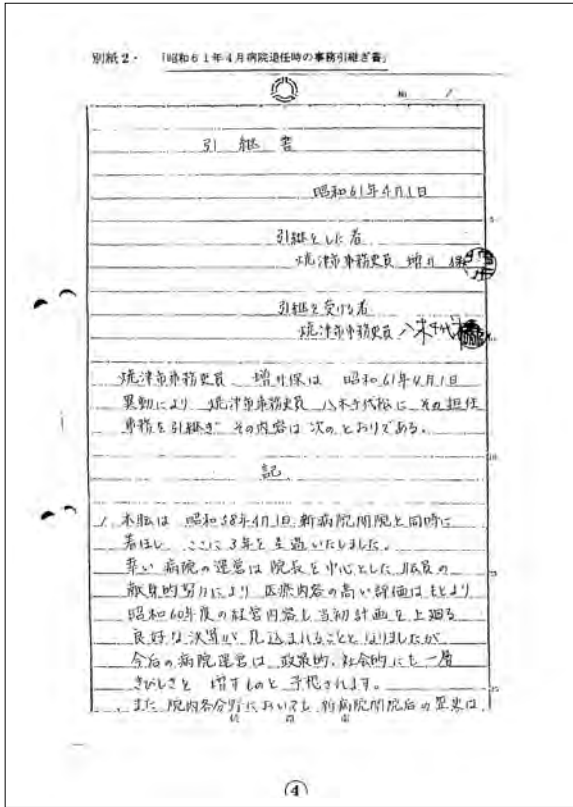 別紙2・ 「昭和61年4月病院退任時の事務引継ぎ書」
№ /
引継書
昭和61年4月1日
5
引継をした者
焼津市事務吏員 増井 保
引継を受ける者
焼津市事務吏員 八木千代松
10
焼津市事務吏員 増井保は 昭和61年4月1日
異動により 焼津市事務吏員 八木千代松に その担任
事務を引継ぎ その内容は 次のとおりである。
記
1. 本職は 昭和58年4月1日 新病院開院と同時に
着任し ここに3年を経過いたしました。
幸い 病院の運営は 院長を中心とした 職員の
献身的努力により 医療内容の高い評価はもとより
昭和60年度の経営内容も 当初計画を上廻る
良好な決算が 見込まれることとなりましたが
今后の病院運営は 政策的、社会的にも一層
きびしさを 増すものと予想されます。
また 院内各分野においても 新病院開院后の 歴史は
焼津市
④